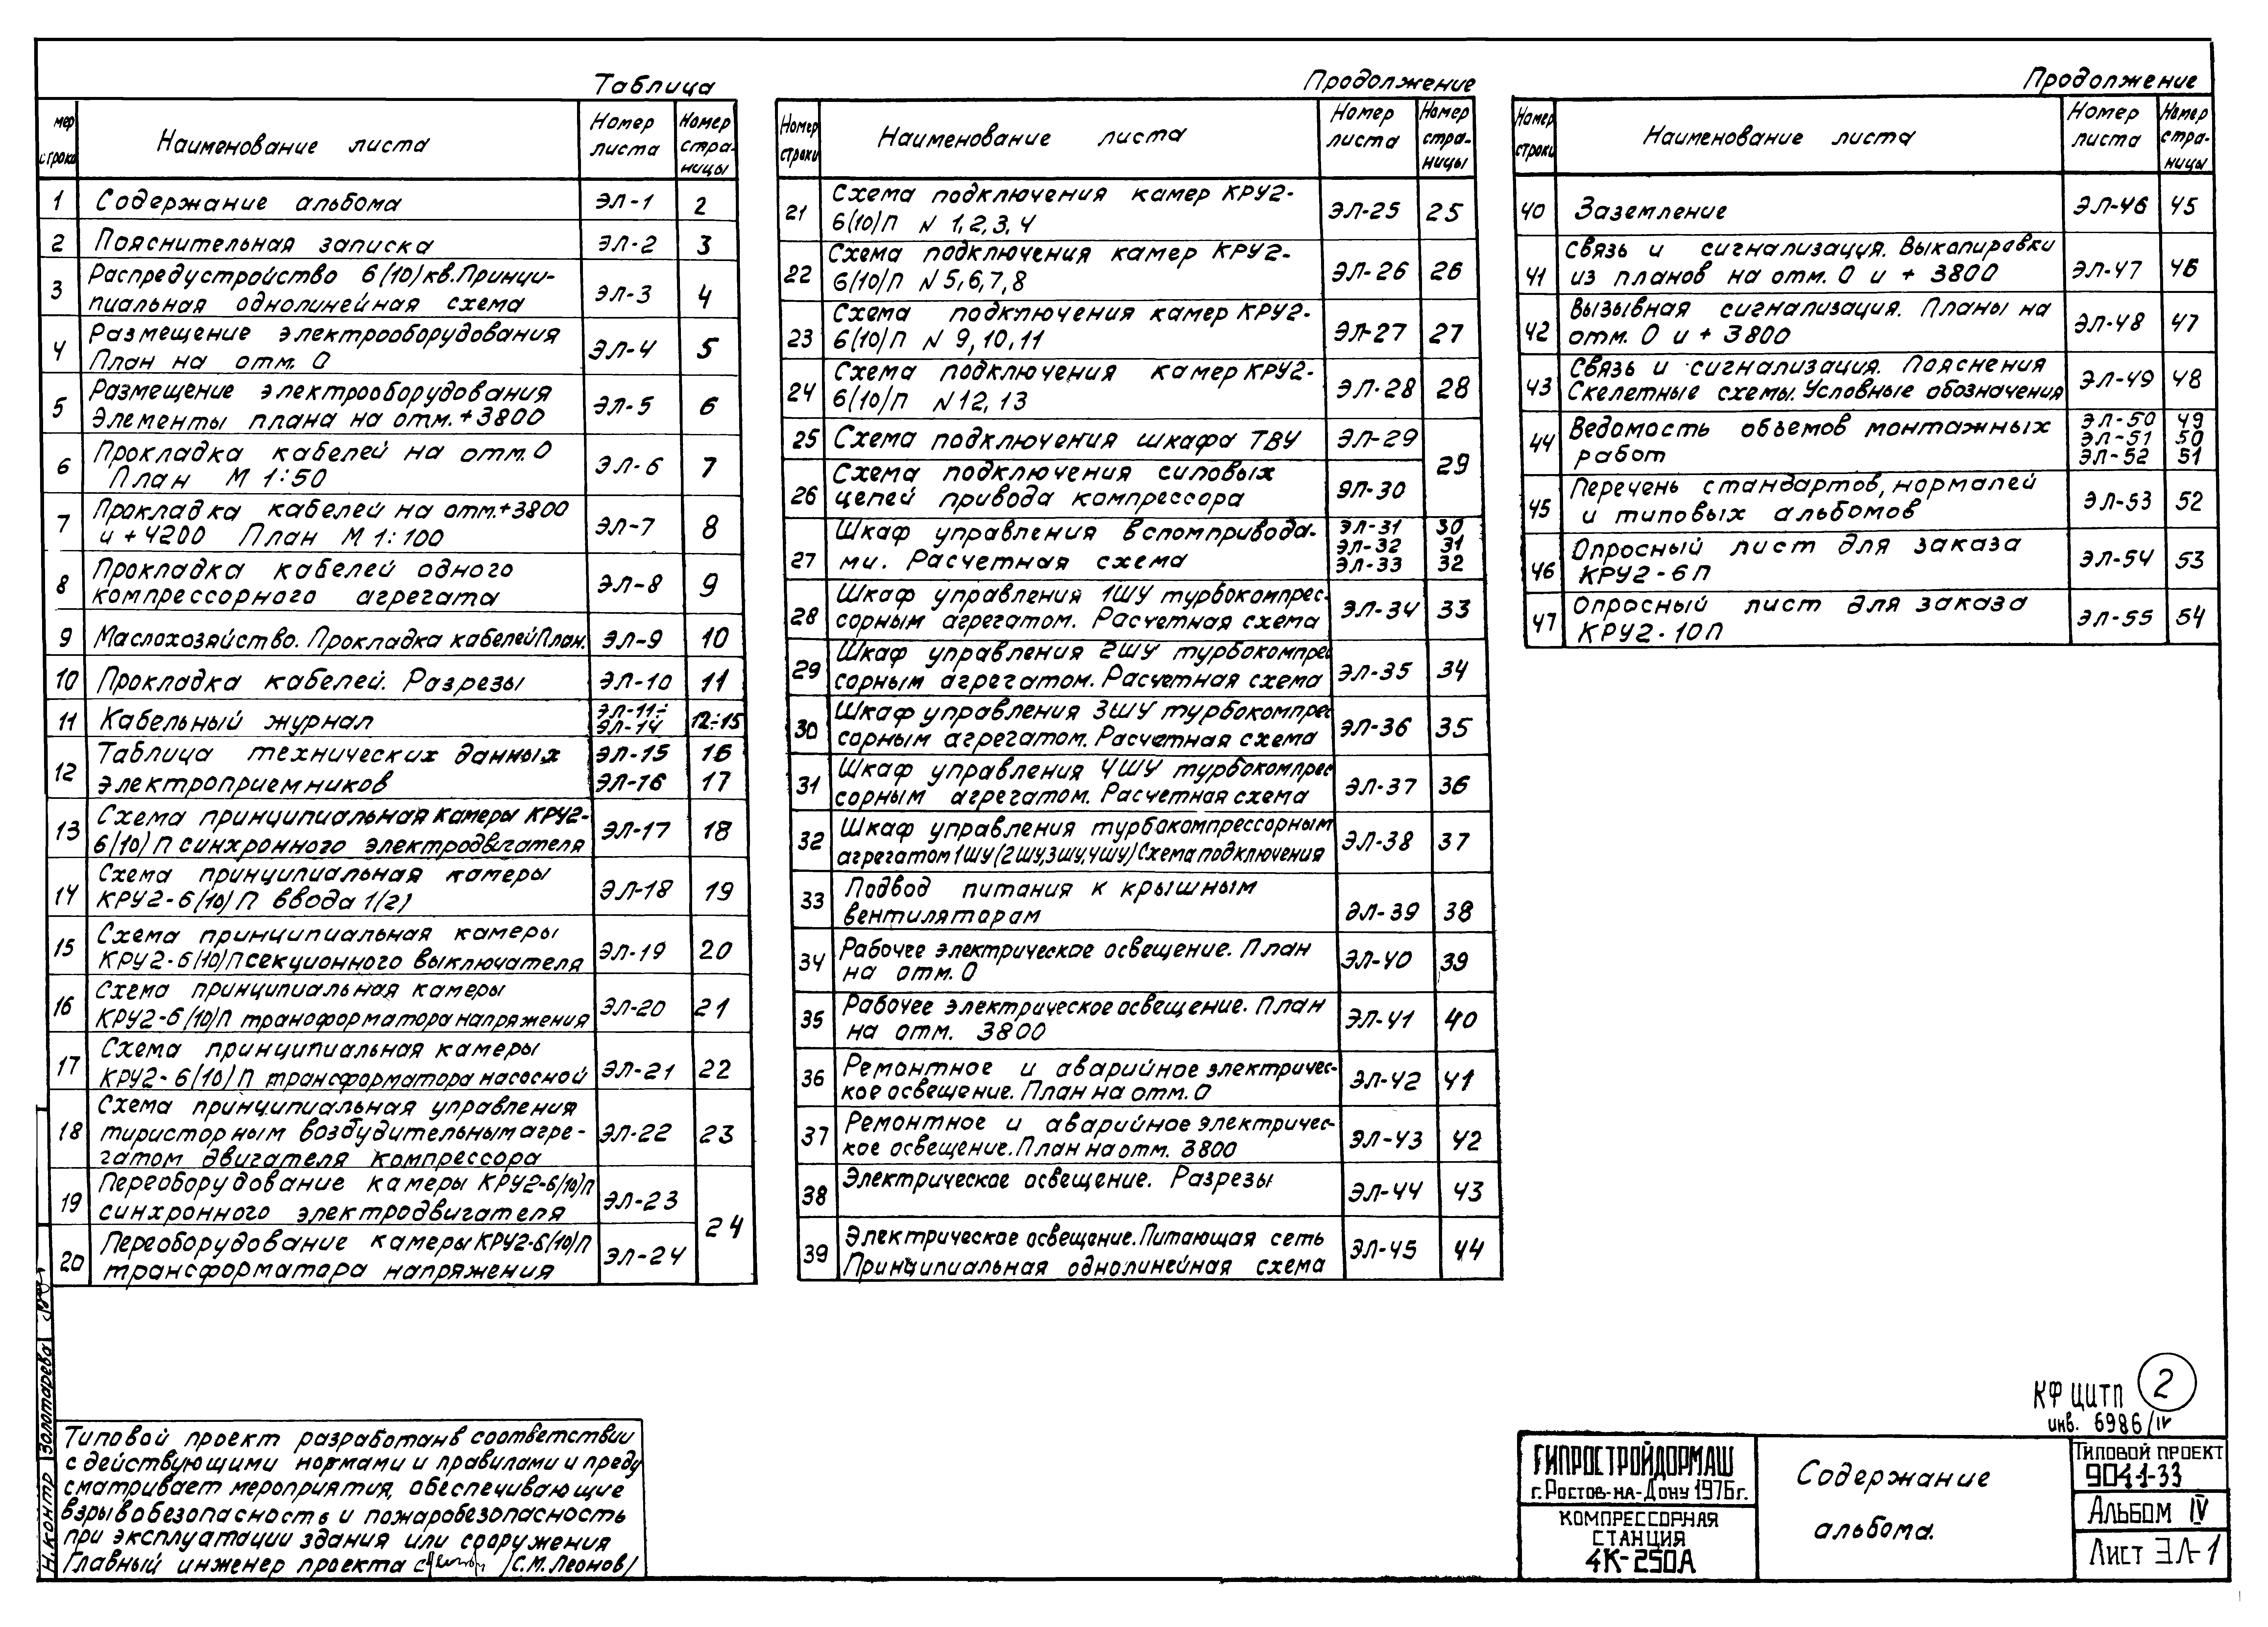 Таблица
мер строки
Наименование листа
Номер листа
Номер страницы
1 Содержание альбома ЭЛ-1 2
2 Пояснительная записка ЭЛ-2 3
3 Распредустройство 6(10)кв. Принци-
пиальная однолинейная схема ЭЛ-3 4
4 Размещение электрооборудования
План на отм. 0 ЭЛ-4 5
5 Размещение электрооборудования
Элементы плана на отм. +3800 ЭЛ-5 6
6 Прокладка кабелей на отм. 0
План М 1:50 ЭЛ-6 7
7 Прокладка кабелей на отм. +3800
и +4200 План М 1:100 ЭЛ-7 8
8 Прокладка кабелей одного
компрессорного агрегата ЭЛ-8 9
9 Маслохозяйство. Прокладка кабелей План. ЭЛ-9 10
10 Прокладка кабелей. Разрезы ЭЛ-10 11
11 Кабельный журнал ЭЛ-11÷ ЭЛ-14 12÷15
12 Таблица технических данных ЭЛ-15 16
электроприемников ЭЛ-16 17
13 Схема принципиальная камеры КРУ2-
6/10/П синхронного электродвигателя ЭЛ-17 18
14 Схема принципиальная камеры
КРУ2-6/10/П ввода 1/2/ ЭЛ-18 19
15 Схема принципиальная камеры
КРУ2-6/10/П секционного выключателя ЭЛ-19 20
16 Схема принципиальная камеры
КРУ2-6/10/П трансформатора напряжения ЭЛ-20 21
17 Схема принципиальная камеры
КРУ2-6/10/П трансформатора насосной ЭЛ-21 22
18 Схема принципиальная управления
тиристорным возбудительным агре-
гатом двигателя компрессора ЭЛ-22 23
19 Переоборудование камеры КРУ2-6/10/П
синхронного электродвигателя ЭЛ-23 24
20 Переоборудование камеры КРУ2-6/10/П
трансформатора напряжения ЭЛ-24
Продолжение
Номер строки
Наименование листа
Номер листа
Номер страницы
21 Схема подключения камер КРУ2-
6/10/П N 1,2,3,4 ЭЛ-25 25
22 Схема подключения камер КРУ2-
6/10/П N 5,6,7,8 ЭЛ-26 26
23 Схема подключения камер КРУ2-
6/10/П N 9,10,11 ЭЛ-27 27
24 Схема подключения камер КРУ2-
6/10/П N 12, 13 ЭЛ-28 28
25 Схема подключения шкафа ТВУ ЭЛ-29 29
26 Схема подключения силовых
цепей привода компрессора ЭЛ-30
27 Шкаф управления вспомпривода-
ми. Расчетная схема
ЭЛ-31 30
ЭЛ-32 31
ЭЛ-33 32
28 Шкаф управления 1ШУ турбокомпрес-
сорным агрегатом. Расчетная схема ЭЛ-34 33
29 Шкаф управления 2ШУ турбокомпрес
сорным агрегатом. Расчетная схема ЭЛ-35 34
30 Шкаф управления 3ШУ турбокомпрес
сорным агрегатом. Расчетная схема ЭЛ-36 35
31 Шкаф управления 4ШУ турбокомпрес
сорным агрегатом. Расчетная схема ЭЛ-37 36
32 Шкаф управления турбокомпрессорным
агрегатом 1ШУ(2ШУ,3ШУ,4ШУ) Схема подключения ЭЛ-38 37
33 Подвод питания к крышным
вентиляторам ЭЛ-39 38
34 Рабочее электрическое освещение. План
на отм. 0 ЭЛ-40 39
35 Рабочее электрическое освещение. План
на отм. 3800 ЭЛ-41 40
36 Ремонтное и аварийное электричес-
кое освещение. План на отм. 0 ЭЛ-42 41
37 Ремонтное и аварийное электричес-
кое освещение. План на отм. 3800 ЭЛ-43 42
38 Электрическое освещение. Разрезы ЭЛ-44 43
39 Электрическое освещение. Питающая сеть
Принципиальная однолинейная схема ЭЛ-45 44
Продолжение
Номер строки
Наименование листа
Номер листа
Номер страницы
40 Заземление ЭЛ-46 45
41 Связь и сигнализация. Выкопировки
из планов на отм. 0 и + 3800 ЭЛ-47 46
42 Вызывная сигнализация. Планы на
отм. 0 и + 3800 ЭЛ-48 47
43 Связь и сигнализация. Пояснения
Скелетные схемы. Условные обозначения ЭЛ-49 48
44 Ведомость объемов монтажных
работ
ЭЛ-50 49
ЭЛ-51 50
ЭЛ-52 51
45 Перечень стандартов, нормалей
и типовых альбомов ЭЛ-53 52
46 Опросный лист для заказа
КРУ2-6П ЭЛ-54 53
47 Опросный лист для заказа
КРУ2-10П ЭЛ-55 54
Н.контр Золотарева
Типовой проект разработан в соответствии
с действующими нормами и правилами и преду
сматривает мероприятия, обеспечивающие
взрывобезопасность и пожаробезопасность
при эксплуатации здания или сооружения
Главный инженер проекта /С.М.Леонов/
КФ ЦИТП 2
инв. 6986/IV
ГИПРОСТРОЙДОРМАШ
г. Ростов-на-Дону 1976г.
КОМПРЕССОРНАЯ
СТАНЦИЯ
4К-250А
Содержание
альбома.
ТИПОВОЙ ПРОЕКТ
904-1-33
АЛЬБОМ IV
ЛИСТ ЭЛ-1